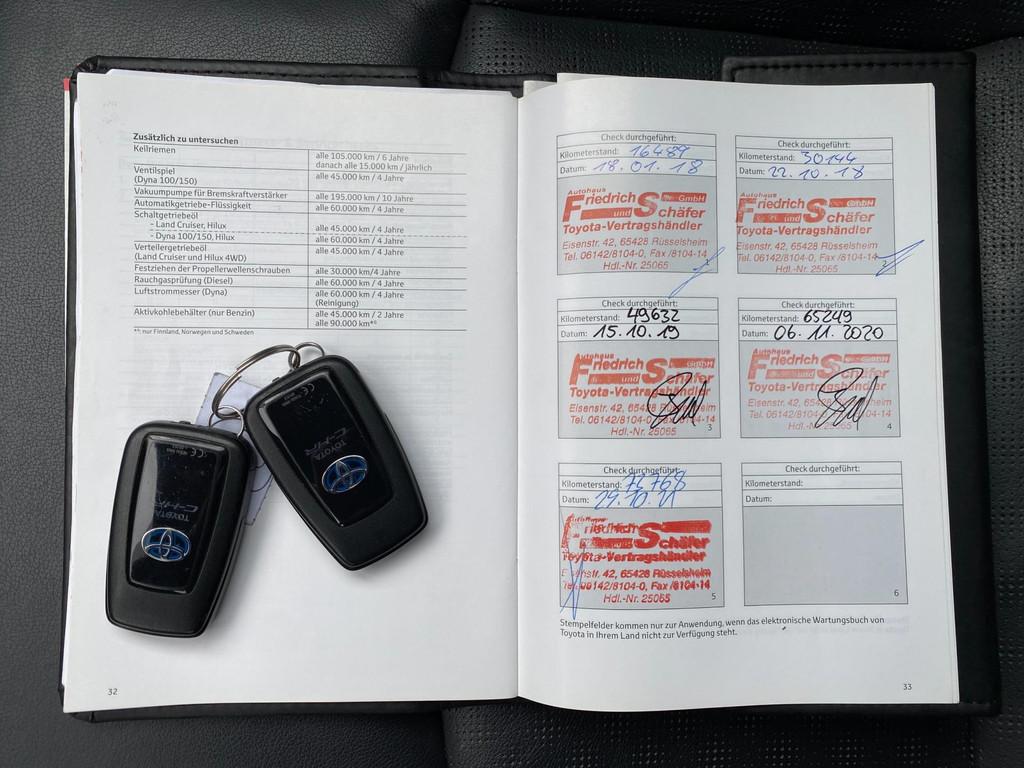 Zusätzlich zu untersuchen
Keilriemen alle 105.000 km / 6 Jahre
danach alle 15.000 km / jährlich
Ventilspiel alle 45.000 km / 4 Jahre
(Dyna 100/150)
Vakuumpumpe für Bremskraftverstärker alle 195.000 km / 10 Jahre
Automatikgetriebe-Flüssigkeit alle 60.000 km / 4 Jahre
Schaltgetriebeöl
- Land Cruiser, Hilux alle 45.000 km / 4 Jahre
- Dyna 100/150, Hilux alle 60.000 km / 4 Jahre
Verteilergetriebeöl alle 45.000 km / 4 Jahre
(Land Cruiser und Hilux 4WD)
Festziehen der Propellerwellenschrauben alle 30.000 km/4 Jahre
Rauchgasprüfung (Diesel) alle 60.000 km / 4 Jahre
Luftstrommesser (Dyna) alle 60.000 km / 4 Jahre
(Reinigung)
Aktivkohlebehälter (nur Benzin) alle 45.000 km / 2 Jahre
alle 90.000 km*⁶
*⁶: nur Finnland, Norwegen und Schweden
TOYOTA
C-HR
TOYOTA
C-HR
32
Check durchgeführt:
Kilometerstand: 16489
Datum: 18.01.18
Autohaus
Friedrich und Schäfer GmbH
Toyota-Vertragshändler
Eisenstr. 42, 65428 Rüsselsheim
Tel. 06142/8104-0, Fax /8104-14
Hdl.-Nr. 25065
1
Check durchgeführt:
Kilometerstand: 30144
Datum: 22.10.18
Autohaus
Friedrich und Schäfer GmbH
Toyota-Vertragshändler
Eisenstr. 42, 65428 Rüsselsheim
Tel. 06142/8104-0, Fax /8104-14
Hdl.-Nr. 25065
2
Check durchgeführt:
Kilometerstand: 49632
Datum: 15.10.19
Autohaus
Friedrich und Schäfer GmbH
Toyota-Vertragshändler
Eisenstr. 42, 65428 Rüsselsheim
Tel. 06142/8104-0, Fax /8104-14
Hdl.-Nr. 25065
3
Check durchgeführt:
Kilometerstand: 65249
Datum: 06.11.2020
Autohaus
Friedrich und Schäfer GmbH
Toyota-Vertragshändler
Eisenstr. 42, 65428 Rüsselsheim
Tel. 06142/8104-0, Fax /8104-14
Hdl.-Nr. 25065
4
Check durchgeführt:
Kilometerstand: 75768
Datum: 29.10.21
Autohaus
Friedrich und Schäfer GmbH
Toyota-Vertragshändler
Eisenstr. 42, 65428 Rüsselsheim
Tel. 06142/8104-0, Fax /8104-14
Hdl.-Nr. 25065
5
Check durchgeführt:
Kilometerstand:
Datum:
6
Stempelfelder kommen nur zur Anwendung, wenn das elektronische Wartungsbuch von
Toyota in Ihrem Land nicht zur Verfügung steht.
33